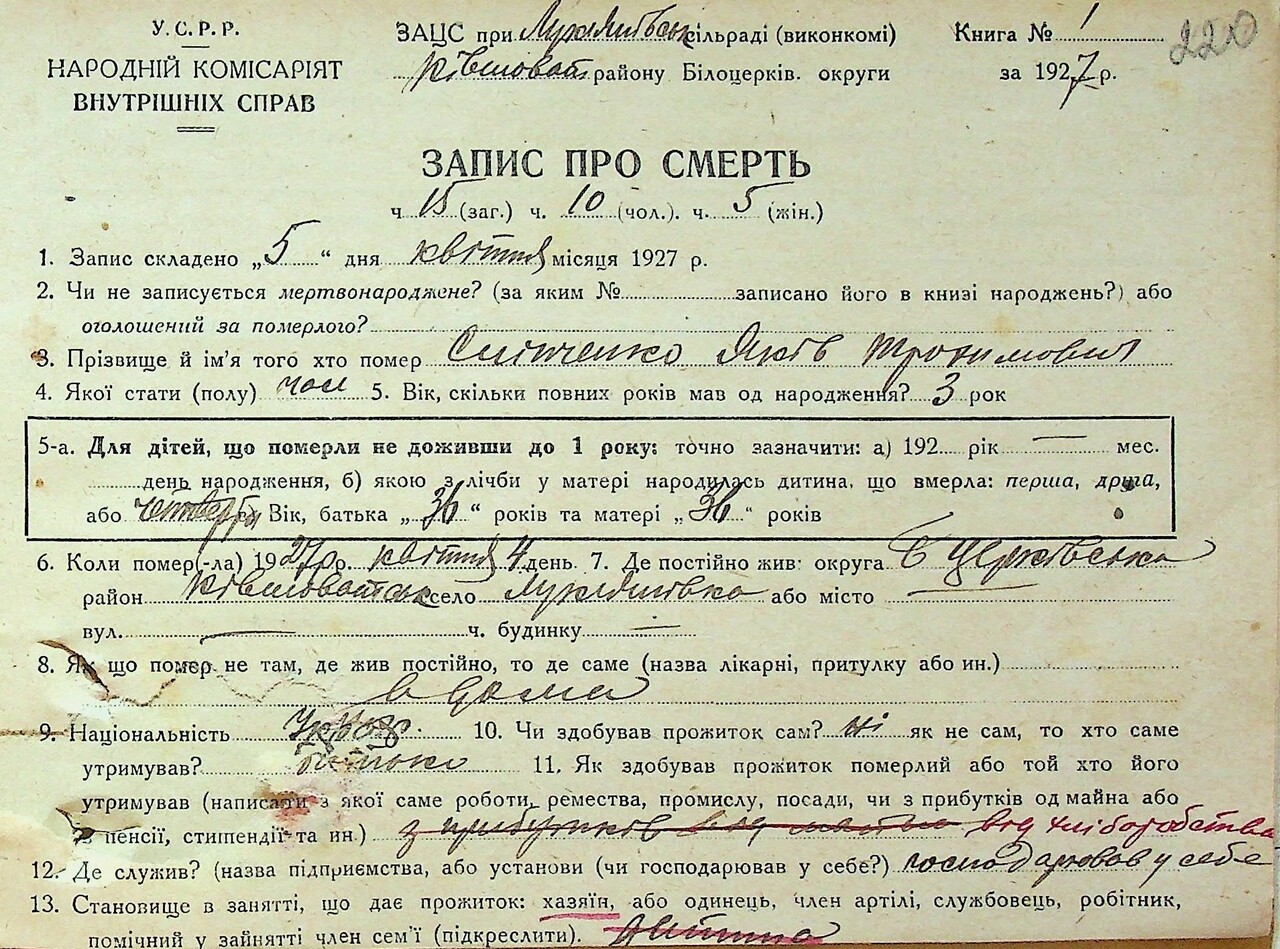 У.С.Р.Р.
НАРОДНІЙ КОМІСАРІЯТ
ВНУТРІШНІХ СПРАВ
ЗАЦС при Лукянівськ сільраді (виконкомі)
Ківшоват району Білоцерків. округи
Книга № 1
за 1927 р.
220
ЗАПИС ПРО СМЕРТЬ
ч 15 (заг.) ч. 10 (чол.). ч. 5 (жін.)
1. Запис складено „5“ дня квітня місяця 1927 р.
2. Чи не записується мертвонароджене? (за яким № записано його в книзі народжень?) або
оголошений за померлого?
3. Прізвище й ім'я того хто помер Яків Трохимович
4. Якої стати (полу) чол 5. Вік, скільки повних років мав од народження? 3 рок
5-а. Для дітей, що померли не доживши до 1 року: точно зазначити: а) 192 рік — мес.
день народження, б) якою з лічби у матері народилась дитина, що вмерла: перша, друга,
або четверта Вік, батька „36“ років та матері „36“ років
6. Коли помер(-ла) 1927р. квітня 4 день 7. Де постійно жив: округа Б Церківська
район Ківшоватськ село Лукянівка або місто —
вул. — ч. будинку —
8. Як що помер не там, де жив постійно, то де саме (назва лікарні, притулку або ин.)
в дома
9. Національність Украї. 10. Чи здобував прожиток сам? ні як не сам, то хто саме
утримував? батько 11. Як здобував прожиток померлий або той хто його
утримував (написати з якої саме роботи, ремества, промислу, посади, чи з прибутків од майна або
з пенсії, стипендії та ин.) з прибутків від майна від хліборобства
12. Де служив? (назва підприємства, або установи (чи господарював у себе?) господарював у себе
13. Становище в занятті, що дає прожиток: хазяїн, або одинець, член артілі, службовець, робітник,
помічний у зайнятті член сем'ї (підкреслити). дитина